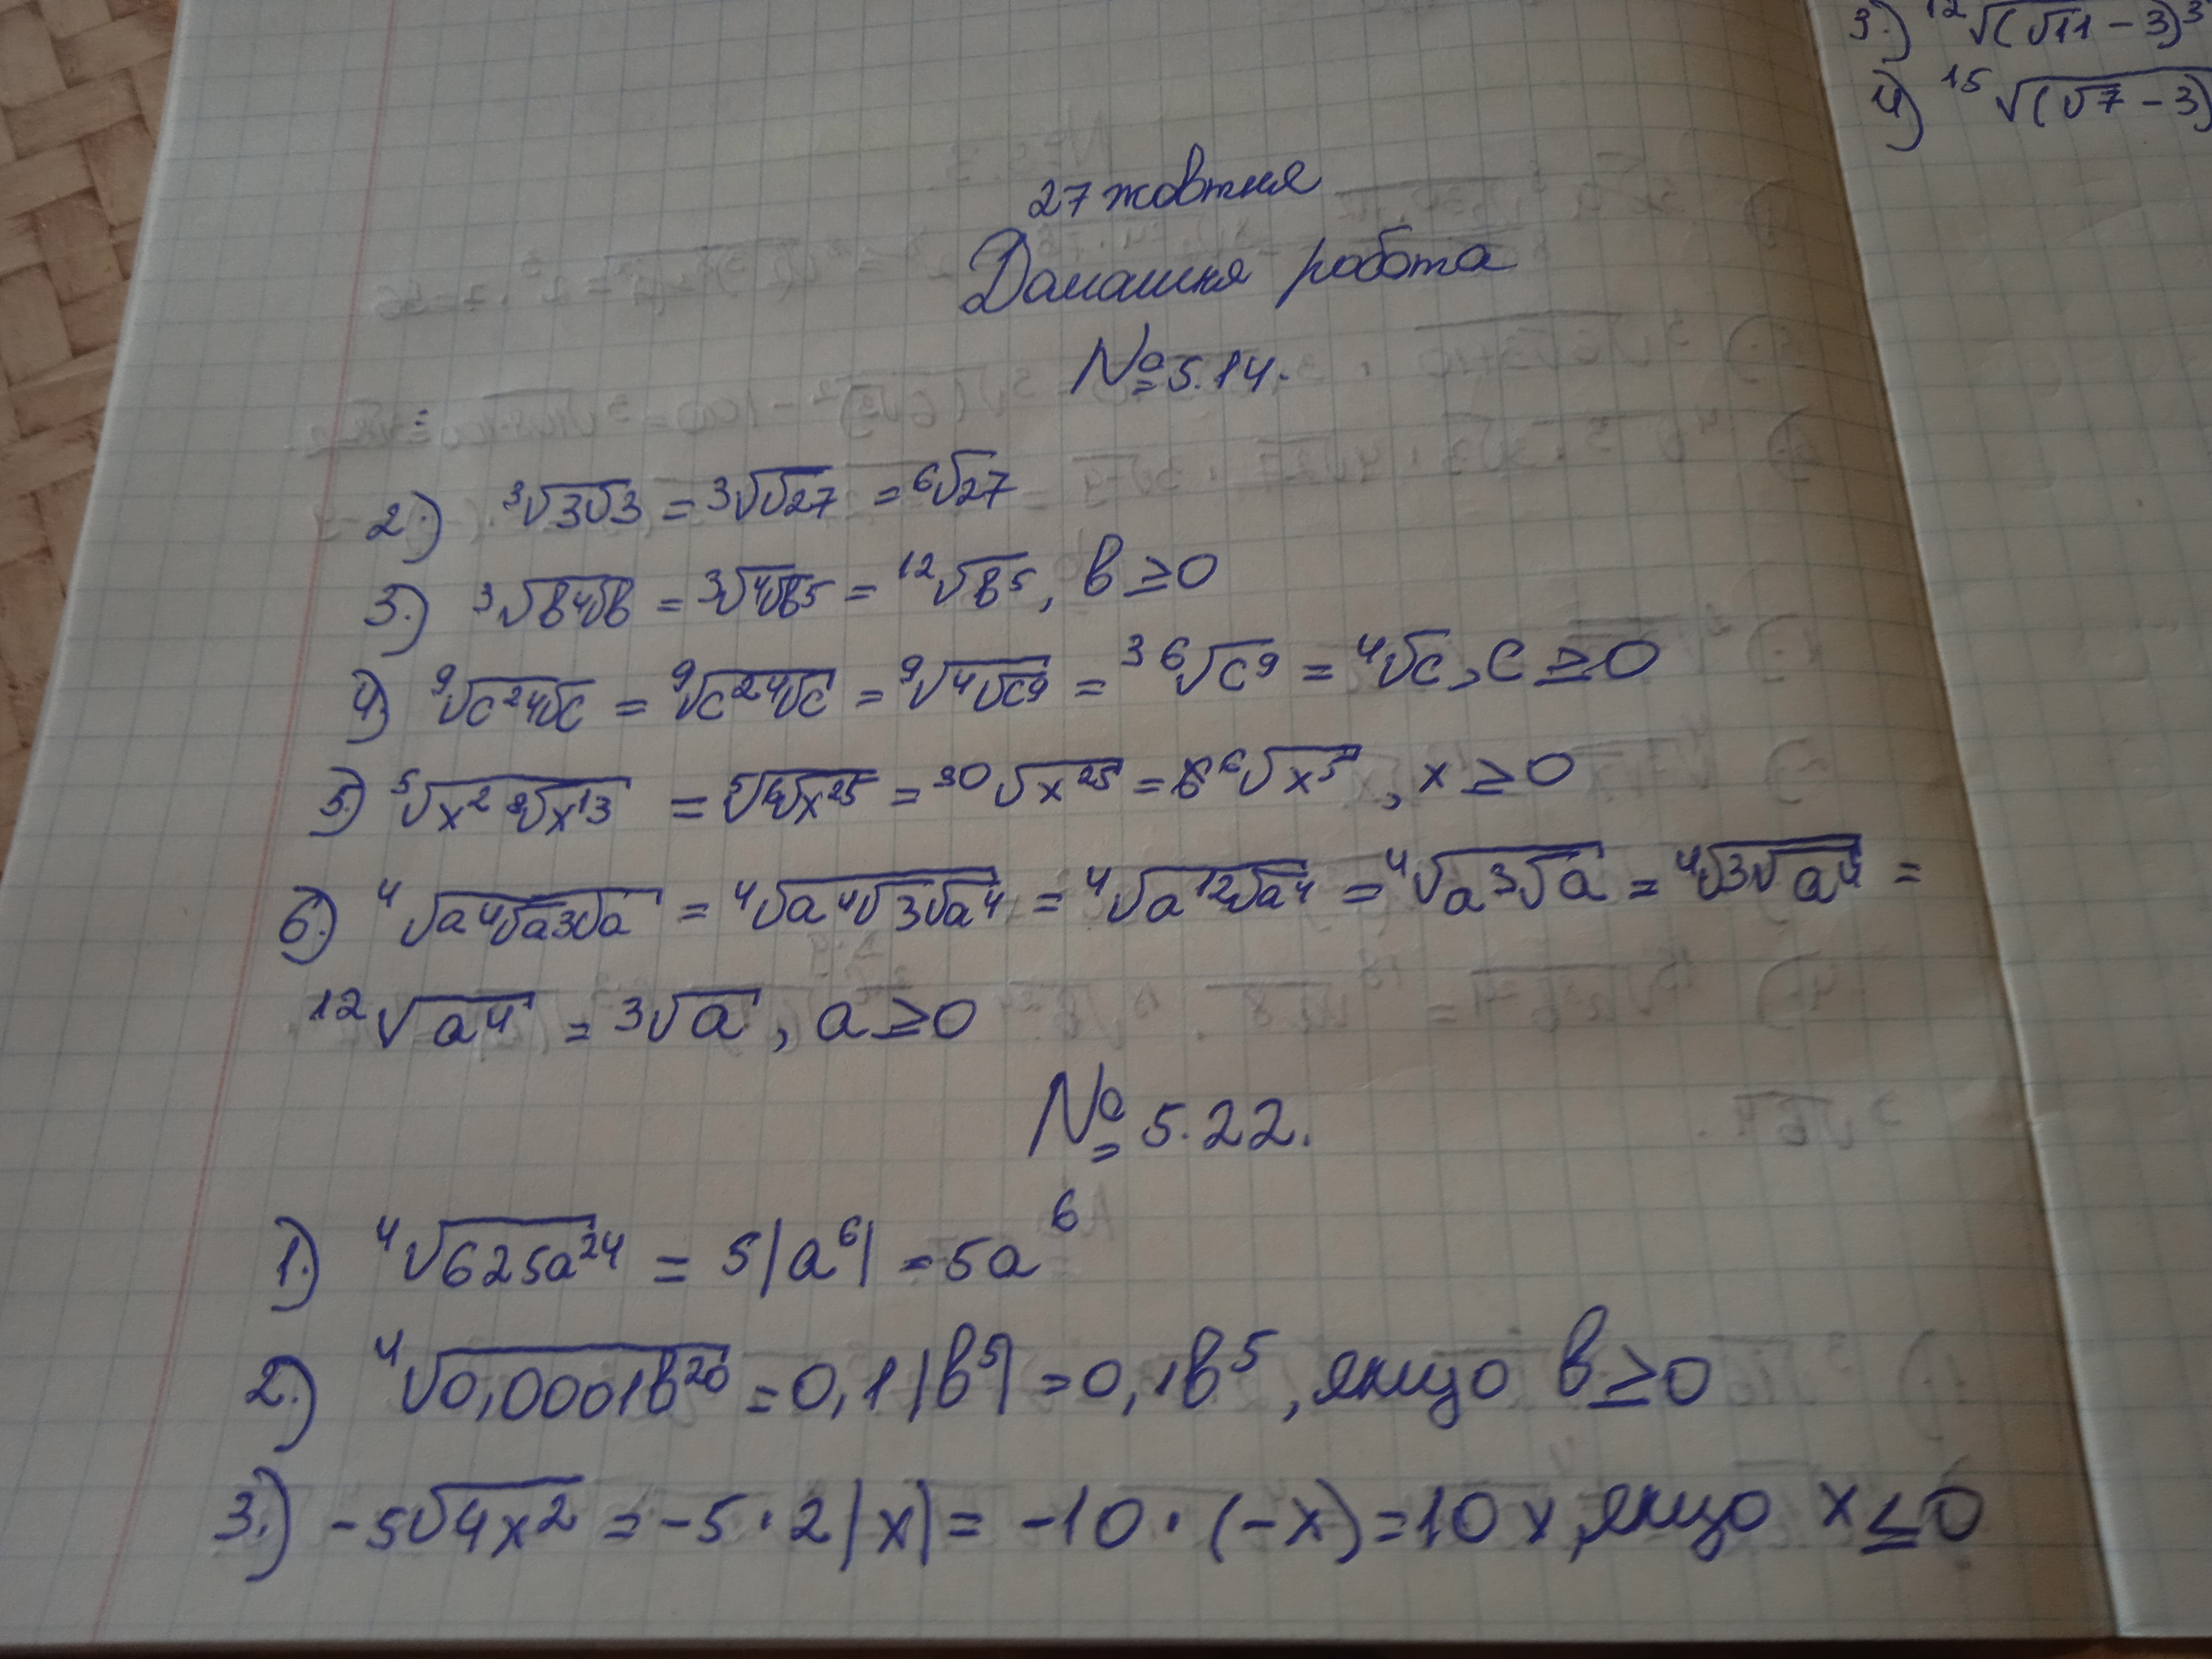 27 жовтня
Домашня робота
№ 5.14.
2.) ³√(3√3) = ³√(√27) = ⁶√27
3.) ³√(b⁴√b) = ³√(⁴√b⁵) = ¹²√b⁵, b ≥ 0
4.) ⁹√(c²⁴√c) = ⁹√(c²⁴√c) = ⁹√(⁴√c⁹) = ³⁶√c⁹ = ⁴√c, c ≥ 0
5.) ⁵√(x² ⁶√x¹³) = ⁵√(⁶√x²⁵) = ³⁰√x²⁵ = ⁶√x⁵, x ≥ 0
6.) ⁴√(a⁴√(a³√a)) = ⁴√(a⁴√(³√a⁴)) = ⁴√(a¹²√a⁴) = ⁴√(a³√a) = ⁴√(³√a⁴) =
¹²√a⁴ = ³√a, a ≥ 0
№ 5.22.
1.) ⁴√(625a²⁴) = 5|a⁶| = 5a⁶
2.) ⁴√(0,0001b²⁰) = 0,1|b⁵| = 0,1b⁵, якщо b ≥ 0
3.) -5√(4x²) = -5 · 2|x| = -10 · (-x) = 10x, якщо x ≤ 0
3.) ¹²√(√11 - 3)³
4) ¹⁵√(√7 - 3)